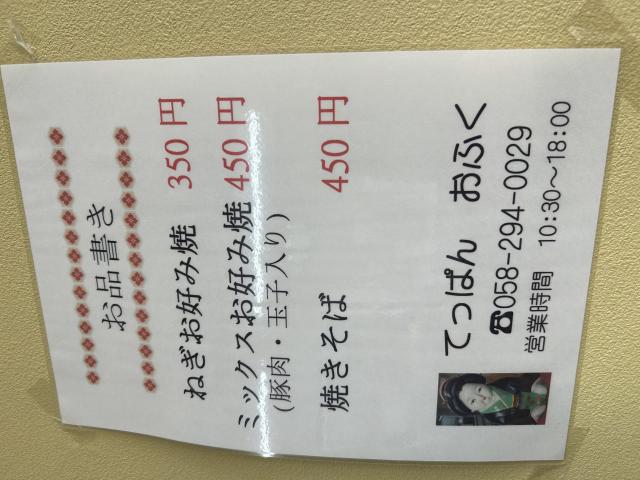 お品書き
ねぎお好み焼 350円
ミックスお好み焼 450円
(豚肉・玉子入り)
焼きそば 450円
てっぱん おふく
☎058-294-0029
営業時間 10:30~18:00